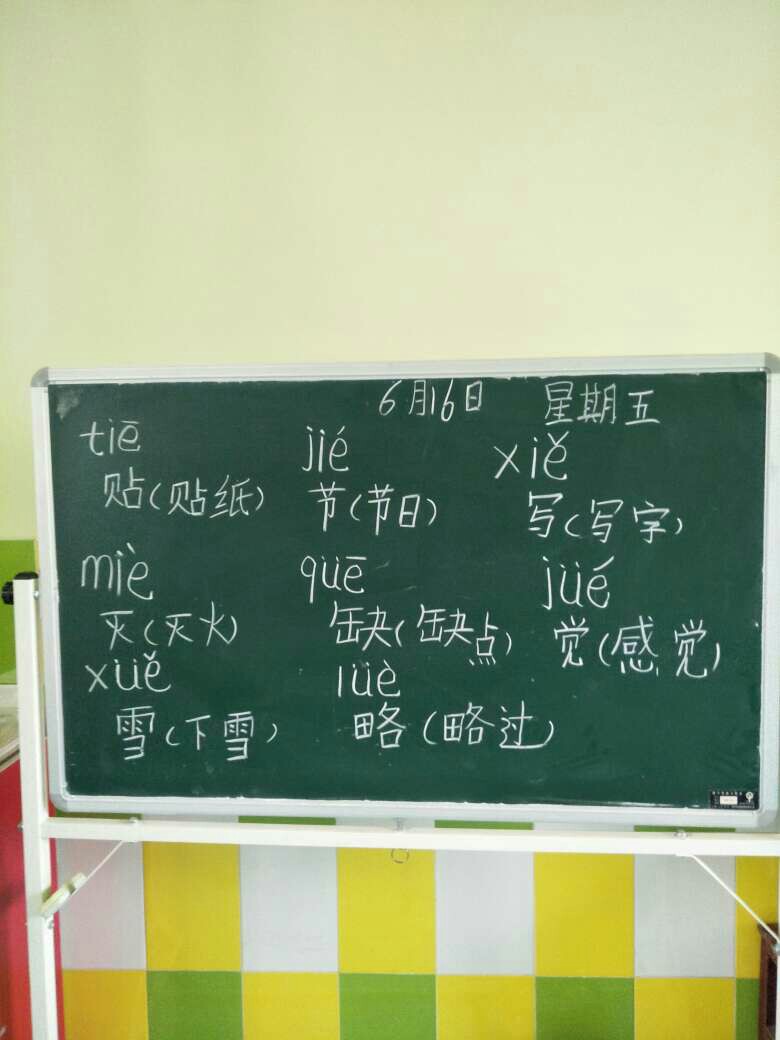 6月16日 星期五
tiē jié xiě
贴(贴纸) 节(节日) 写(写字)
mìe qüē jüé
灭(灭火) 缺(缺点) 觉(感觉)
xüě lüè
雪(下雪) 略(略过)